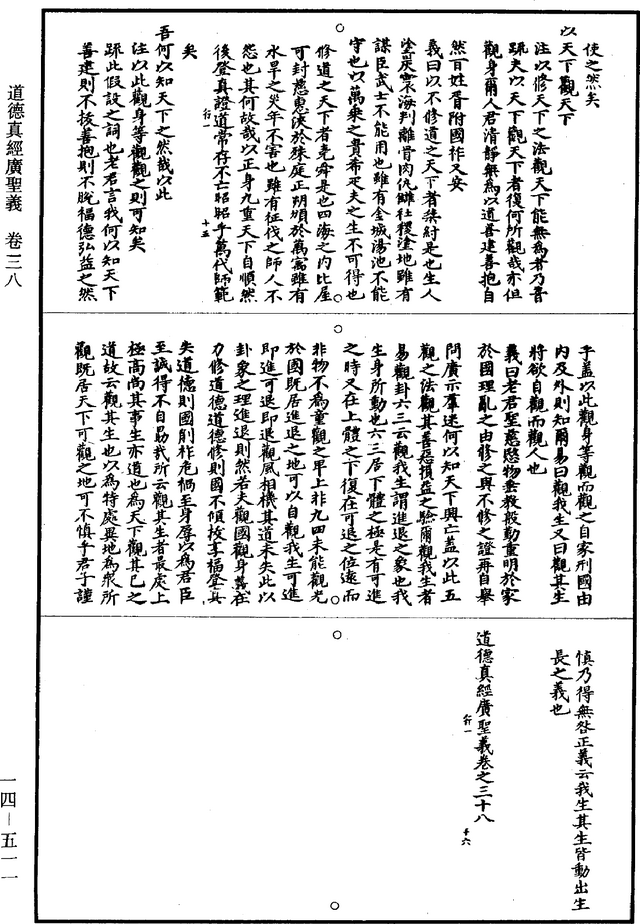 道德真經廣聖義　卷三八
一四—五一一
使之然矣
以天下觀天下
注以修天下之法觀天下能無為者乃吾
疏夫以天下觀天下者復何所觀哉亦但
觀身爾人君清靜無為以道善建善抱自
然百姓胥附國祚乂安
義曰以不修道之天下者桀紂是也生人
塗炭寰海判離骨肉仇讎社稷塗地雖有
謀臣武士不能用也雖有金城湯池不能
守也以萬乘之貴希疋夫之生不可得也
修道之天下者堯舜是也四海之內比屋
可封慈惠浹於殊庭正朔頒於萬寓雖有
水旱之災年不害也雖有征伐之師人不
怨也其何故哉以正身九重天下自順然
後登真證道常存不亡昭昭乎萬代師範
矣
行一
十五
吾何以知天下之然哉以此
注以此觀身等觀觀之則可知矣
疏此假設之詞也老君言我何以知天下
善建則不拔善抱則不脫福德弘益之然
乎蓋以此觀身等觀而觀之自家刑國由
內及外則知爾易曰觀我生又曰觀其生
將欲自觀而觀人也
義曰老君聖慈愍物垂教殷勤重明於家
於國理亂之由修之與不修之證再自舉
問廣示羣迷何以知天下興亡蓋以此五
觀之法觀其善惡損益之驗爾觀我生者
易觀卦六三云觀我生謂進退之象也我
生身所動也六三居下體之極是有可進
之時又在上體之下復在可退之位遠而
非物不為童觀之早上非九四未能觀光
於國既居進退之地可以自觀我生可進
即進可退即退觀風相機其道未失此以
卦象之理進退則然若夫觀國觀身冀在
力修道德道德修則國不傾枝享福登真
失道德則國削祚危禍至身辱以為君臣
至誠得不自勗哉所云觀其生者最處上
極高尚其事生亦道也為天下觀其已之
道故云觀其生也以為特處異地為眾所
觀既居天下可觀之地可不慎乎君子謹
慎乃得無咎正義云我生其生皆動出生
長之義也
道德真經廣聖義卷之三十八
行一
十六